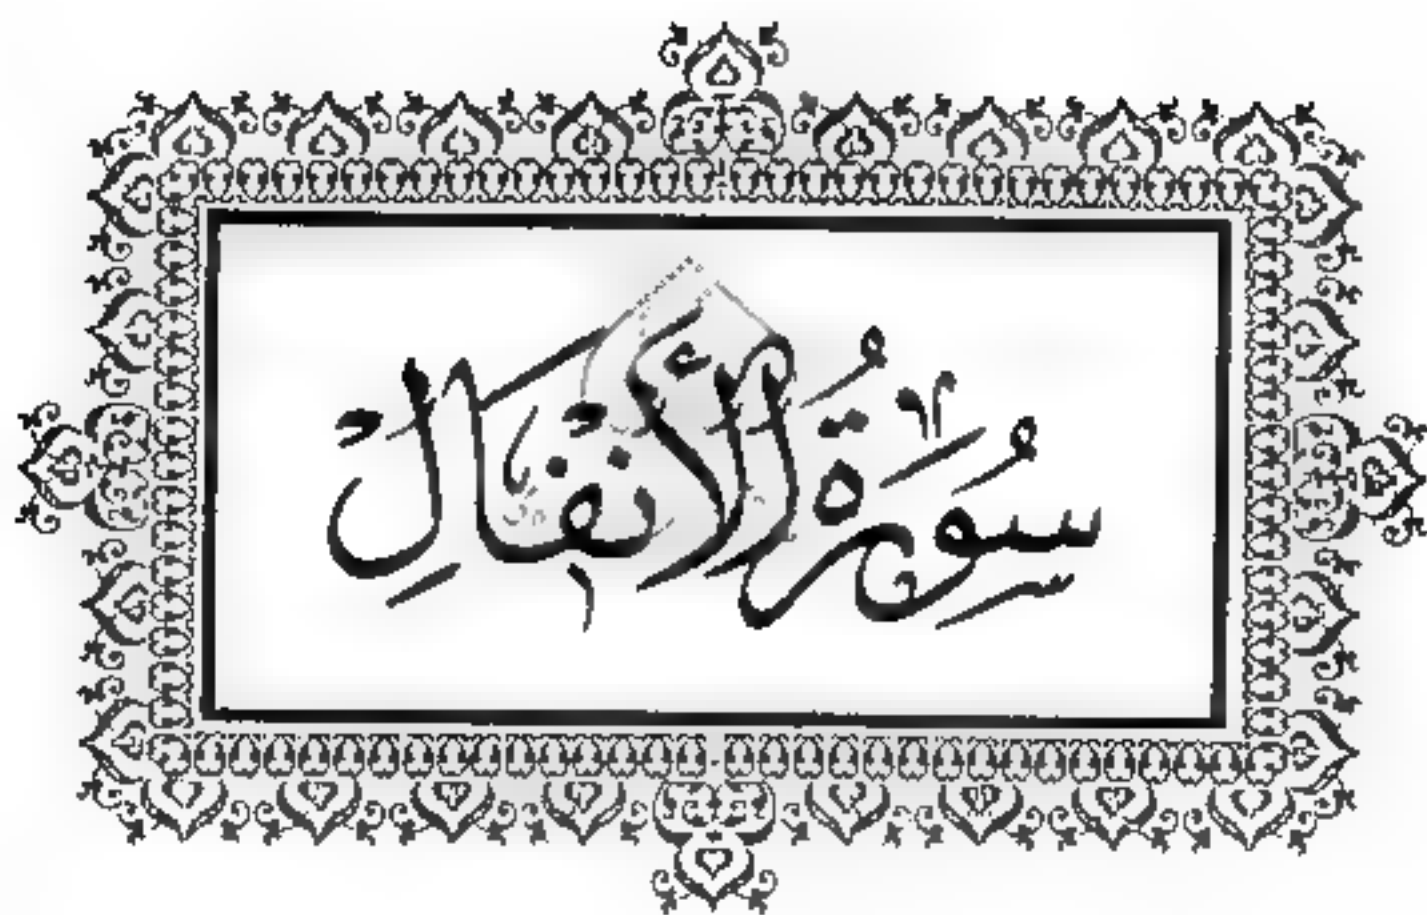 سُورَةُ الْأَنْفَالِ